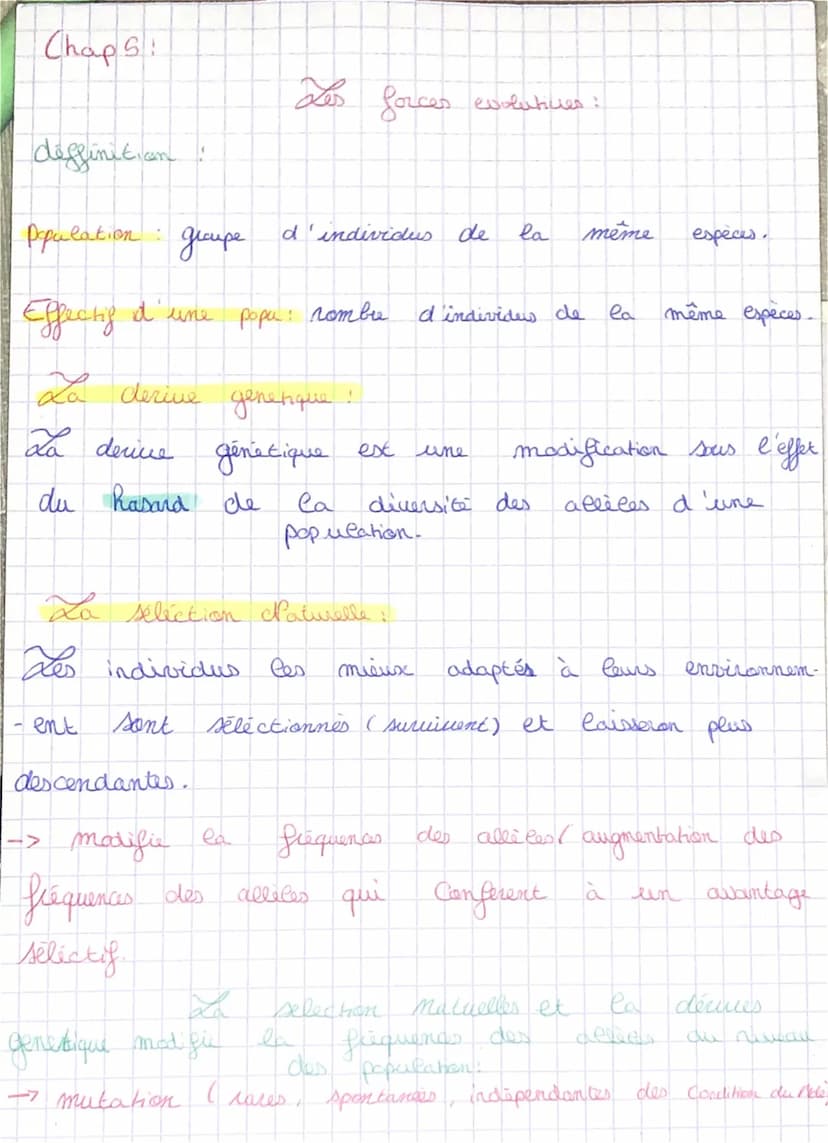 Chap 5 :
Les forces evolutives :
déffinition :
Population : groupe d'individus de la même espèces.
Effectif d'une popu : nombre d'individus de la même espèces.
La derive genetique :
La derive génétique est une modification sous l'effet
du hasard de la diversité des allèles d'une
population.
La séléction Naturelle :
Les individus les mieux adaptés à leurs environnem-
- ent sont séléctionnés ( survivent) et laisseron plus
descendantes.
-> modifie la fréquences des allèles ( augmentation des
fréquences des allèles qui Conferent à un avantage
séléctif.
La selection Naturelles et la dérives
genetique modifie la fréquences des allèles au niveau
des population :
-> mutation ( rares, spontanées, indépendantes des Condition du